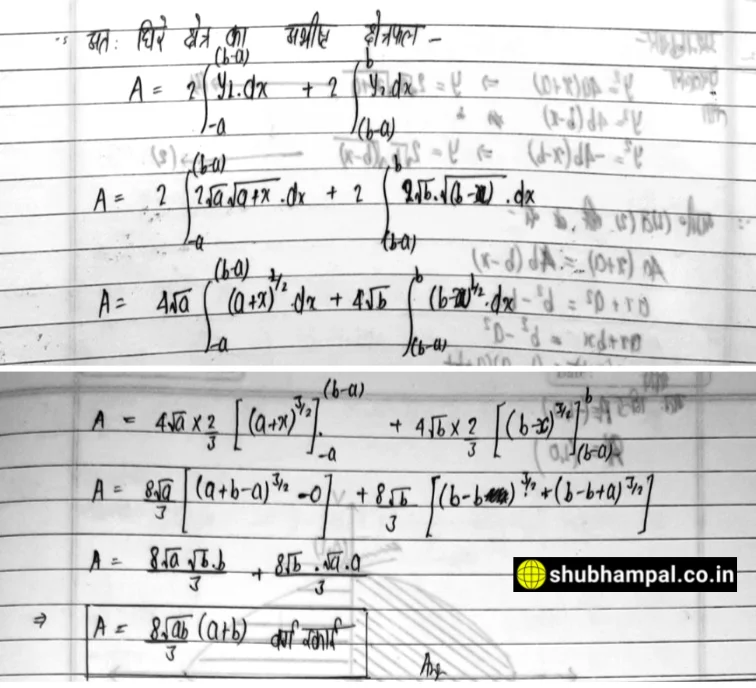 अतः घिरे क्षेत्र का अभीष्ट क्षेत्रफल -
A = 2∫_{-a}^{(b-a)} y₁.dx + 2∫_{(b-a)}^{b} y₂.dx
A = 2∫_{-a}^{(b-a)} 2√a√a+x .dx + 2∫_{(b-a)}^{b} 2√b.√(b-x) .dx
A = 4√a ∫_{-a}^{(b-a)} (a+x)^{1/2}.dx + 4√b ∫_{(b-a)}^{b} (b-x)^{1/2}.dx
A = 4√a × 2/3 [(a+x)^{3/2}]_{-a}^{(b-a)} + 4√b × 2/3 [(b-x)^{3/2}]_{(b-a)}^{b}
A = 8√a/3 [(a+b-a)^{3/2} - 0] + 8√b/3 [(b-b)^{3/2} + (b-b+a)^{3/2}]
A = 8√a √b.b/3 + 8√b .√a.a/3
shubhampal.co.in
⇒ A = 8√ab/3 (a+b) वर्ग इकाई
Ans